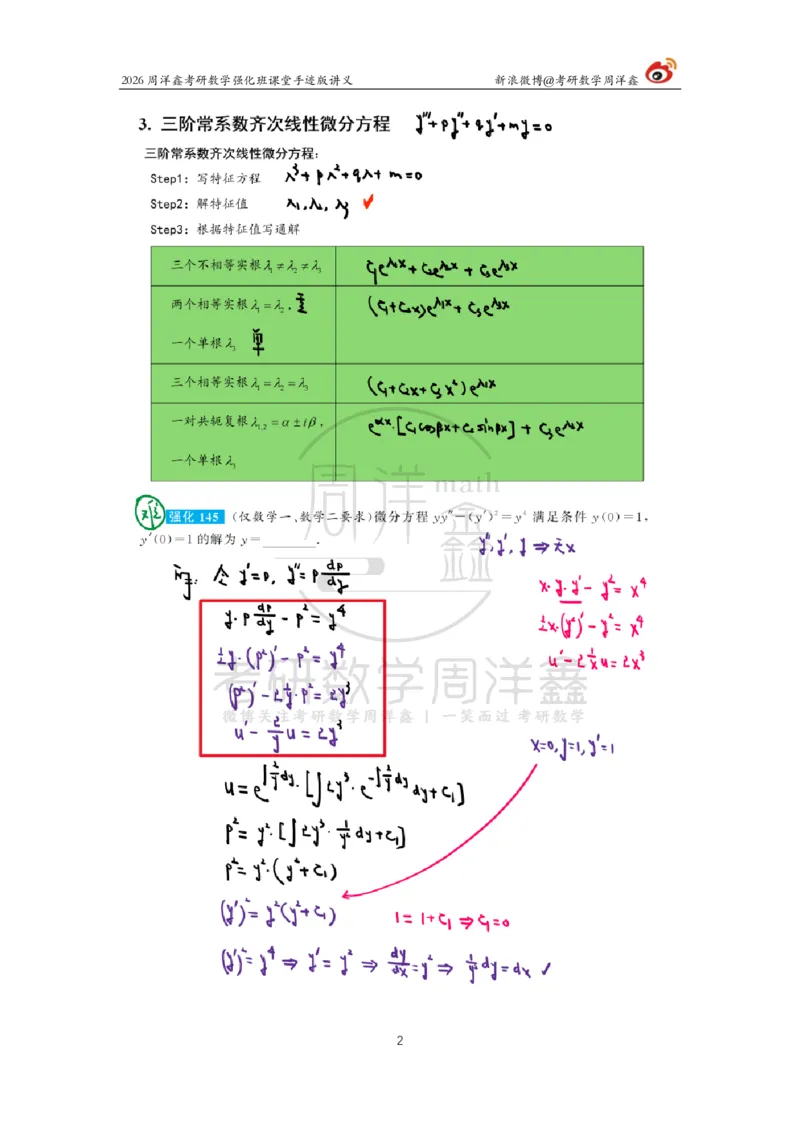 2026 周洋鑫考研数学强化班课堂手迹版讲义 新浪微博@考研数学周洋鑫
3. 三阶常系数齐次线性微分方程 y'''+py''+qy'+my=0
三阶常系数齐次线性微分方程:
Step1: 写特征方程 λ³+pλ²+qλ+m=0
Step2: 解特征值 λ₁,λ₂,λ₃ ✓
Step3: 根据特征值写通解
三个不相等实根 λ₁≠λ₂≠λ₃ C₁e^{λ₁x}+C₂e^{λ₂x}+C₃e^{λ₃x}
两个相等实根 λ₁=λ₂, 重 (C₁+C₂x)e^{λ₁x}+C₃e^{λ₃x}
一个单根 λ₃ 单
三个相等实根 λ₁=λ₂=λ₃ (C₁+C₂x+C₃x²)e^{λ₁x}
一对共轭复根 λ₁,₂=α±iβ, e^{αx}·[C₁cosβx+C₂sinβx]+C₃e^{λ₃x}
一个单根 λ₃
周洋鑫 math
难 强化 145 (仅数学一、数学二要求)微分方程 yy''-(y')²=y⁴ 满足条件 y(0)=1,
y'(0)=1 的解为 y=________.
y'',y',y ⇒ 无x
令 y'=p, y''=p dp/dy
y·p dp/dy - p² = y⁴
½y·(p²)' - p² = y⁴
(p²)' - 2 1/y·p² = 2y³
u' - 2/y u = 2y³
x·y·y' - y² = x⁴
½x·(y²)' - y² = x⁴
u' - 2 1/x u = 2x³
考研数学周洋鑫
微博关注考研数学周洋鑫 | 一笑而过 考研数学
x=0, y=1, y'=1
u=e^{∫2/y dy}·[∫2y³·e^{-∫2/y dy}dy+C₁]
p²=y²·[∫2y³·1/y² dy+C₁]
p²=y²·(y²+C₁)
(y')²=y²(y²+C₁) 1=1+C₁ ⇒ C₁=0
(y')²=y⁴ ⇒ y'=y² ⇒ dy/dx=y² ⇒ 1/y² dy=dx ✓
2